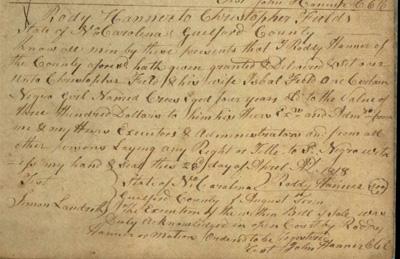 Test John Hanner CCC
Roddy Hanner to Christopher Fields
State of No Carolina Guilford County
Know all men by these presents that I Roddy Hanner of
the County afores'd hath given granted & Delivered & Set over
unto Christopher Fields & his wife Fields One Certain
Negro Girl Named Aged four years &c to the Value of
three Hundred Dollars to him his Heirs Exrs and Admrs from
me & my Heirs Executors & Administrators and from all
other persons Laying any Right or Title to Sd Negro wit
-ess my hand & Seal this 28 day of April AD 1818
Test Roddy Hanner (seal)
State of No Carolina
Guilford County August Term
Simon Landreth The Execution of the within Bill of Sale was
Duly Acknowledged in open Court by Roddy
Hanner on Motion Ordered to be registered
Test John Hanner CCC